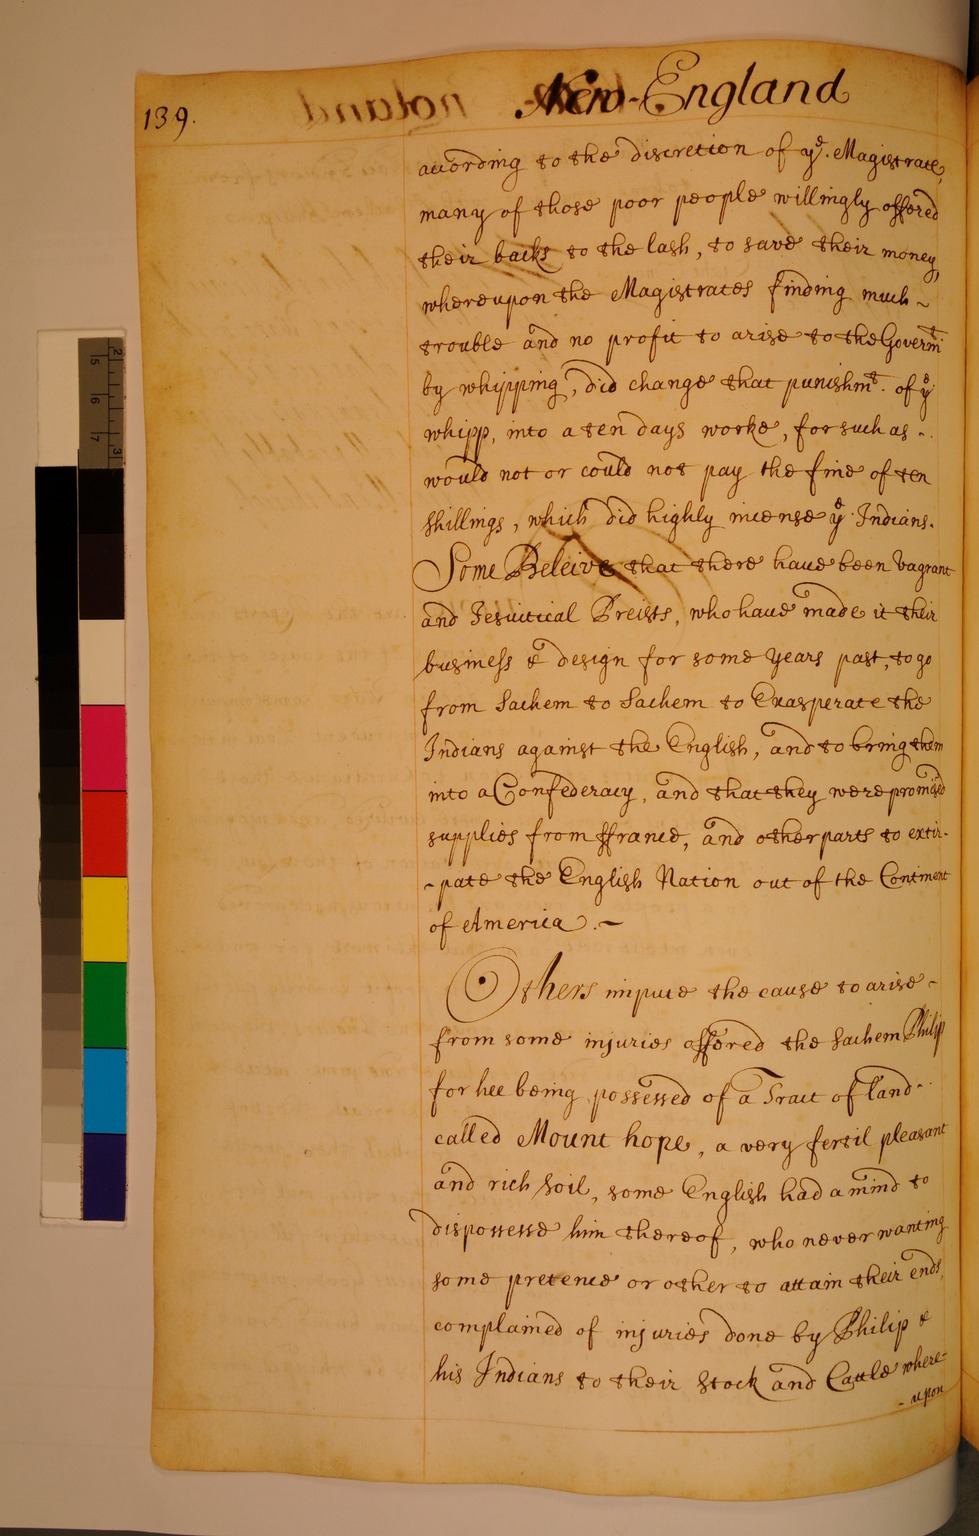 139.
New-England
according to the discretion of yᵉ. Magistrate,
many of those poor people willingly offered
their backs to the lash, to save their money,
whereupon the Magistrates finding much ~
trouble and no profit to arise to the Governmᵗ
by whipping, did change that punishmᵗ. of yᵉ
whipp, into a ten days worke, for such as ~
would not or could not pay the fine of ten
shillings, which did highly incense yᵉ Indians.
Some Beleive that there have been vagrant
and Jesuitical Preists, who have made it their
business & design for some years past, to go
from Sachem to Sachem to Exasperate the
Indians against the English, and to bring them
into a Confederacy, and that they were promised
supplies from ffrance, and other parts to extir-
-pate the English Nation out of the Continent
of America. ~
Others impute the cause to arise ~
from some injuries offered the Sachem Philip
for hee being possessed of a Tract of land
called Mount hope, a very fertil pleasant
and rich soil, some English had a mind to
dispossesse him thereof, who never wanting
some pretence or other to attain their ends,
complained of injuries done by Philip &
his Indians to their Stock and Cattle where-
-upon
5
6
7
2
3